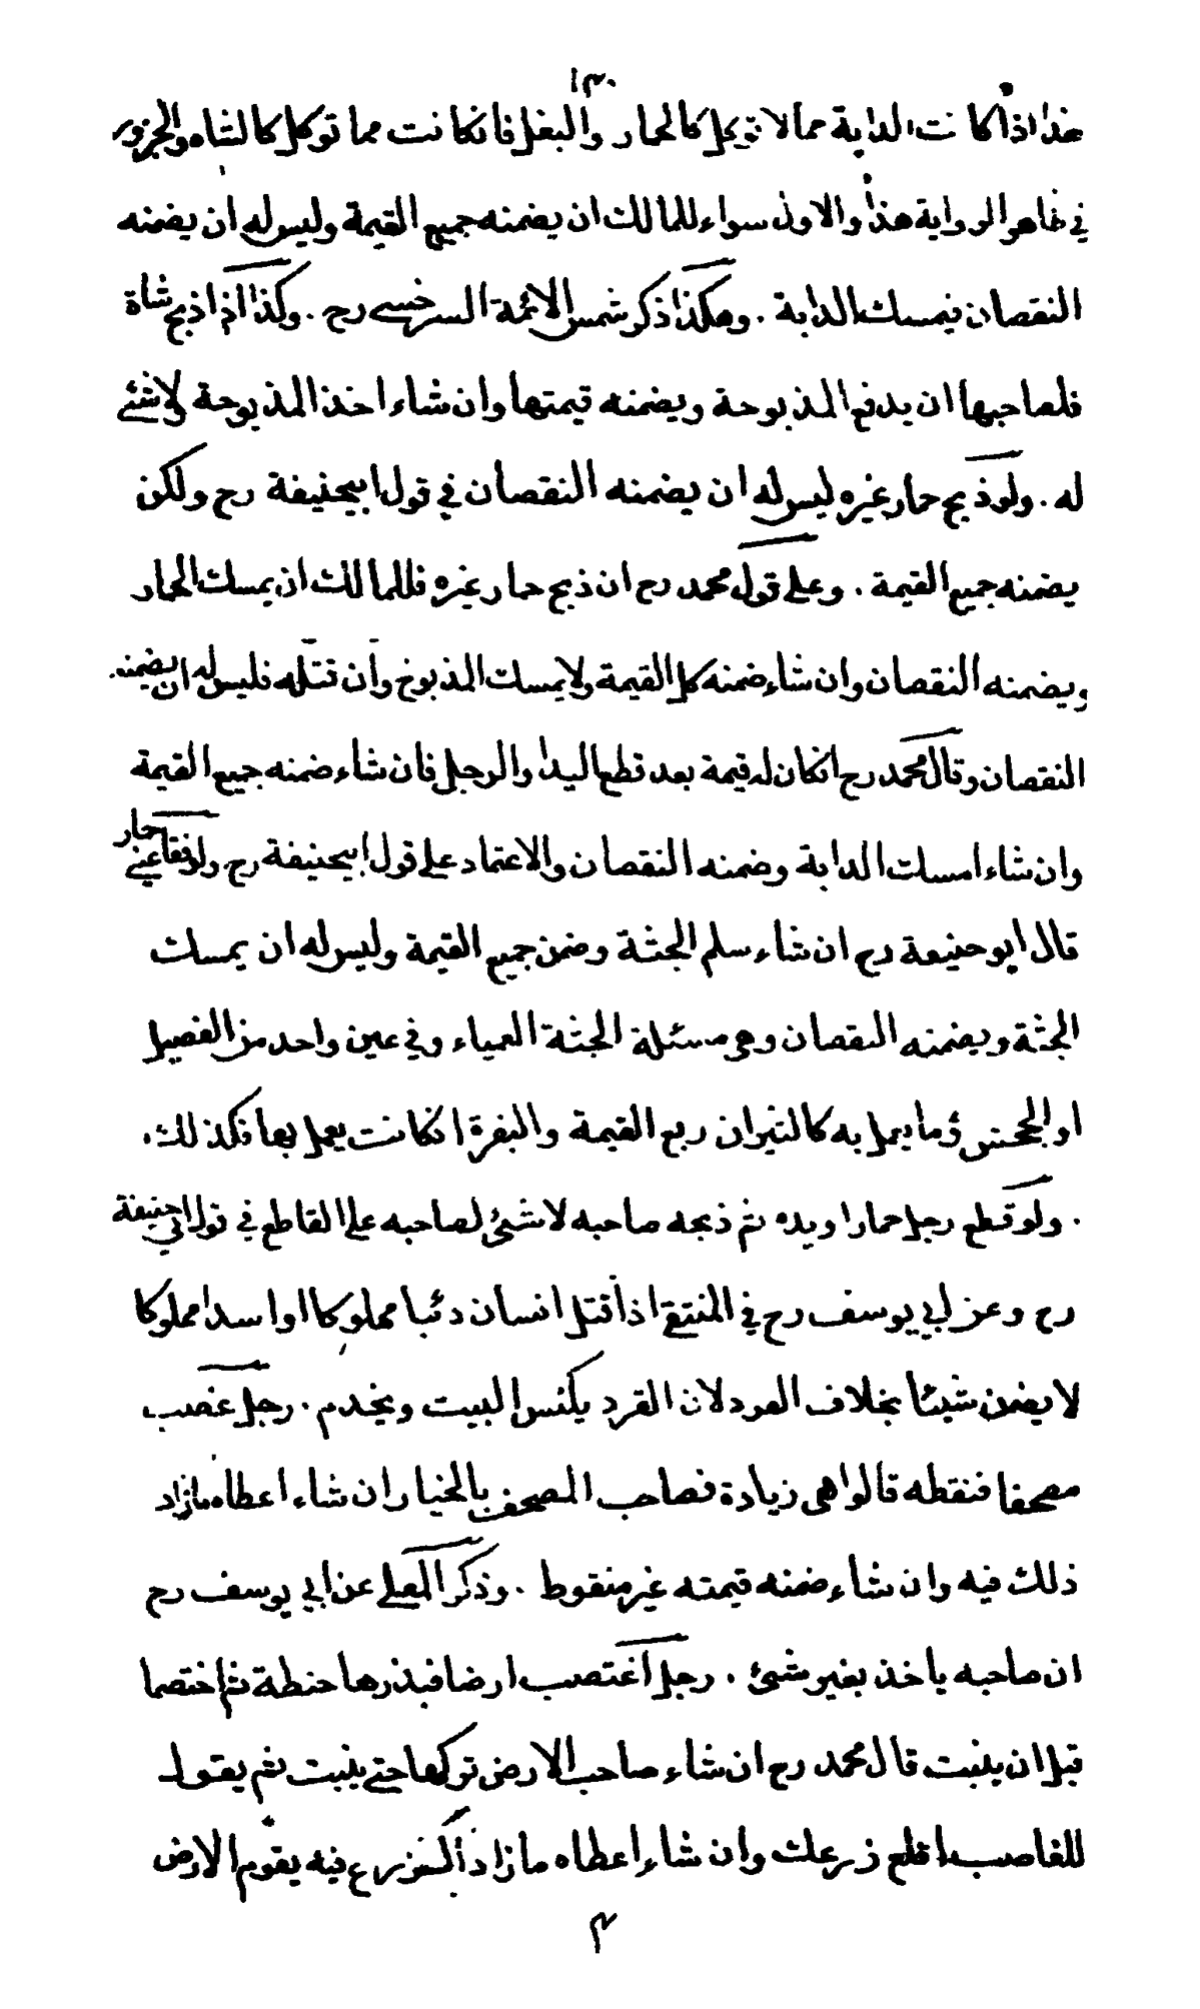 ١٣٠
هذا اذا كانت الدابة مما لا توكل كالحمار والبغل فانكانت مما توكل كالشاه والجزور
في ظاهر الرواية هذا والاول سواء للمالك ان يضمنه جميع القيمة وليس له ان يضمنه
النقصان فيمسك الدابة . وهكذا ذكر شمس الائمة السرخسي رح . وكذا اذا ذبح شاة
فلصاحبها ان يدفع المذبوحة ويضمنه قيمتها وان شاء اخذ المذبوحة ولا شئ
له . ولو ذبح حمار غيره ليس له ان يضمنه النقصان في قول ابيحنيفة رح ولكن
يضمنه جميع القيمة . وعلى قول محمد رح ان ذبح حمار غيره فللمالك ان يمسك الحمار
ويضمنه النقصان وان شاء ضمنه كل القيمة ولا يمسك المذبوح وان قتله فليس له ان يضمنه
النقصان وقال محمد رح انكان له قيمة بعد قطع اليد او الرجل فان شاء ضمنه جميع القيمة
وان شاء امسك الدابة وضمنه النقصان والاعتماد على قول ابيحنيفة رح . ولو فقأ عيني حمار
قال ابو حنيفة رح ان شاء سلم الجثة وضمن جميع القيمة وليس له ان يمسك
الجثة ويضمنه النقصان وهي مسئلة الجثة العمياء وفي عين واحد من الفصيل
او الجحش وما يعمل به كالثيران ربع القيمة والبقرة انكانت يعمل بها فكذلك
. ولو قطع رجل حمارا ويده ثم ذبحه صاحبه لا شئ لصاحبه على القاطع في قول ابي حنيفة
رح وعن ابي يوسف رح في المنتقى اذا قتل انسان ذئبا مملوكا او اسدا مملوكا
لا يضمن شيئا بخلاف القرد لان القرد يكنس البيت ويخدم . رجل غصب
مصحفا فنقطه قالوا هي زيادة فصاحب المصحف بالخيار ان شاء اعطاه ما زاد
ذلك فيه وان شاء ضمنه قيمته غير منقوط . وذكر المعلى عن ابي يوسف رح
ان صاحبه ياخذ بغير شئ . رجل اغتصب ارضا فبذرها حنطة ثم اختصما
قبل ان ينبت قال محمد رح ان شاء صاحب الارض تركها حتى ينبت ثم يقول
للغاصب اقلع زرعك وان شاء اعطاه ما زاد فيه يقوم الارض